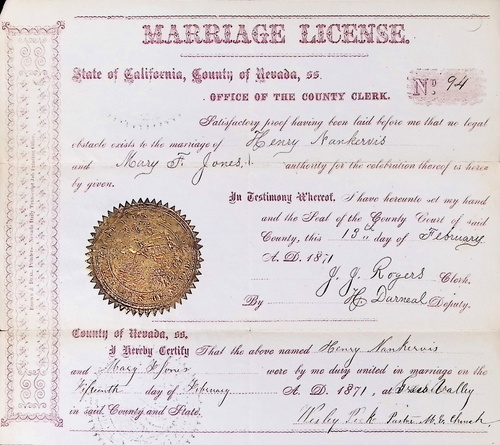 MARRIAGE LICENSE.
State of California, County of Nevada, ss.
No. 94
OFFICE OF THE COUNTY CLERK.
Satisfactory proof having been laid before me that no legal
obstacle exists to the marriage of Henry Nankervis
and Mary F. Jones, authority for the celebration thereof is hereby
given.
In Testimony Whereof, I have hereunto set my hand
and the Seal of the County Court of said
County, this 13th day of February
A. D. 1871
J. J. Rogers Clerk.
By H Darneal Deputy.
County of Nevada, ss.
I Hereby Certify That the above named Henry Nankervis
and Mary F Jones were by me duly united in marriage on the
Fifteenth day of February A. D. 1871, at Grass Valley
in said County and State.
Wesley Peck Pastor M. E. Church